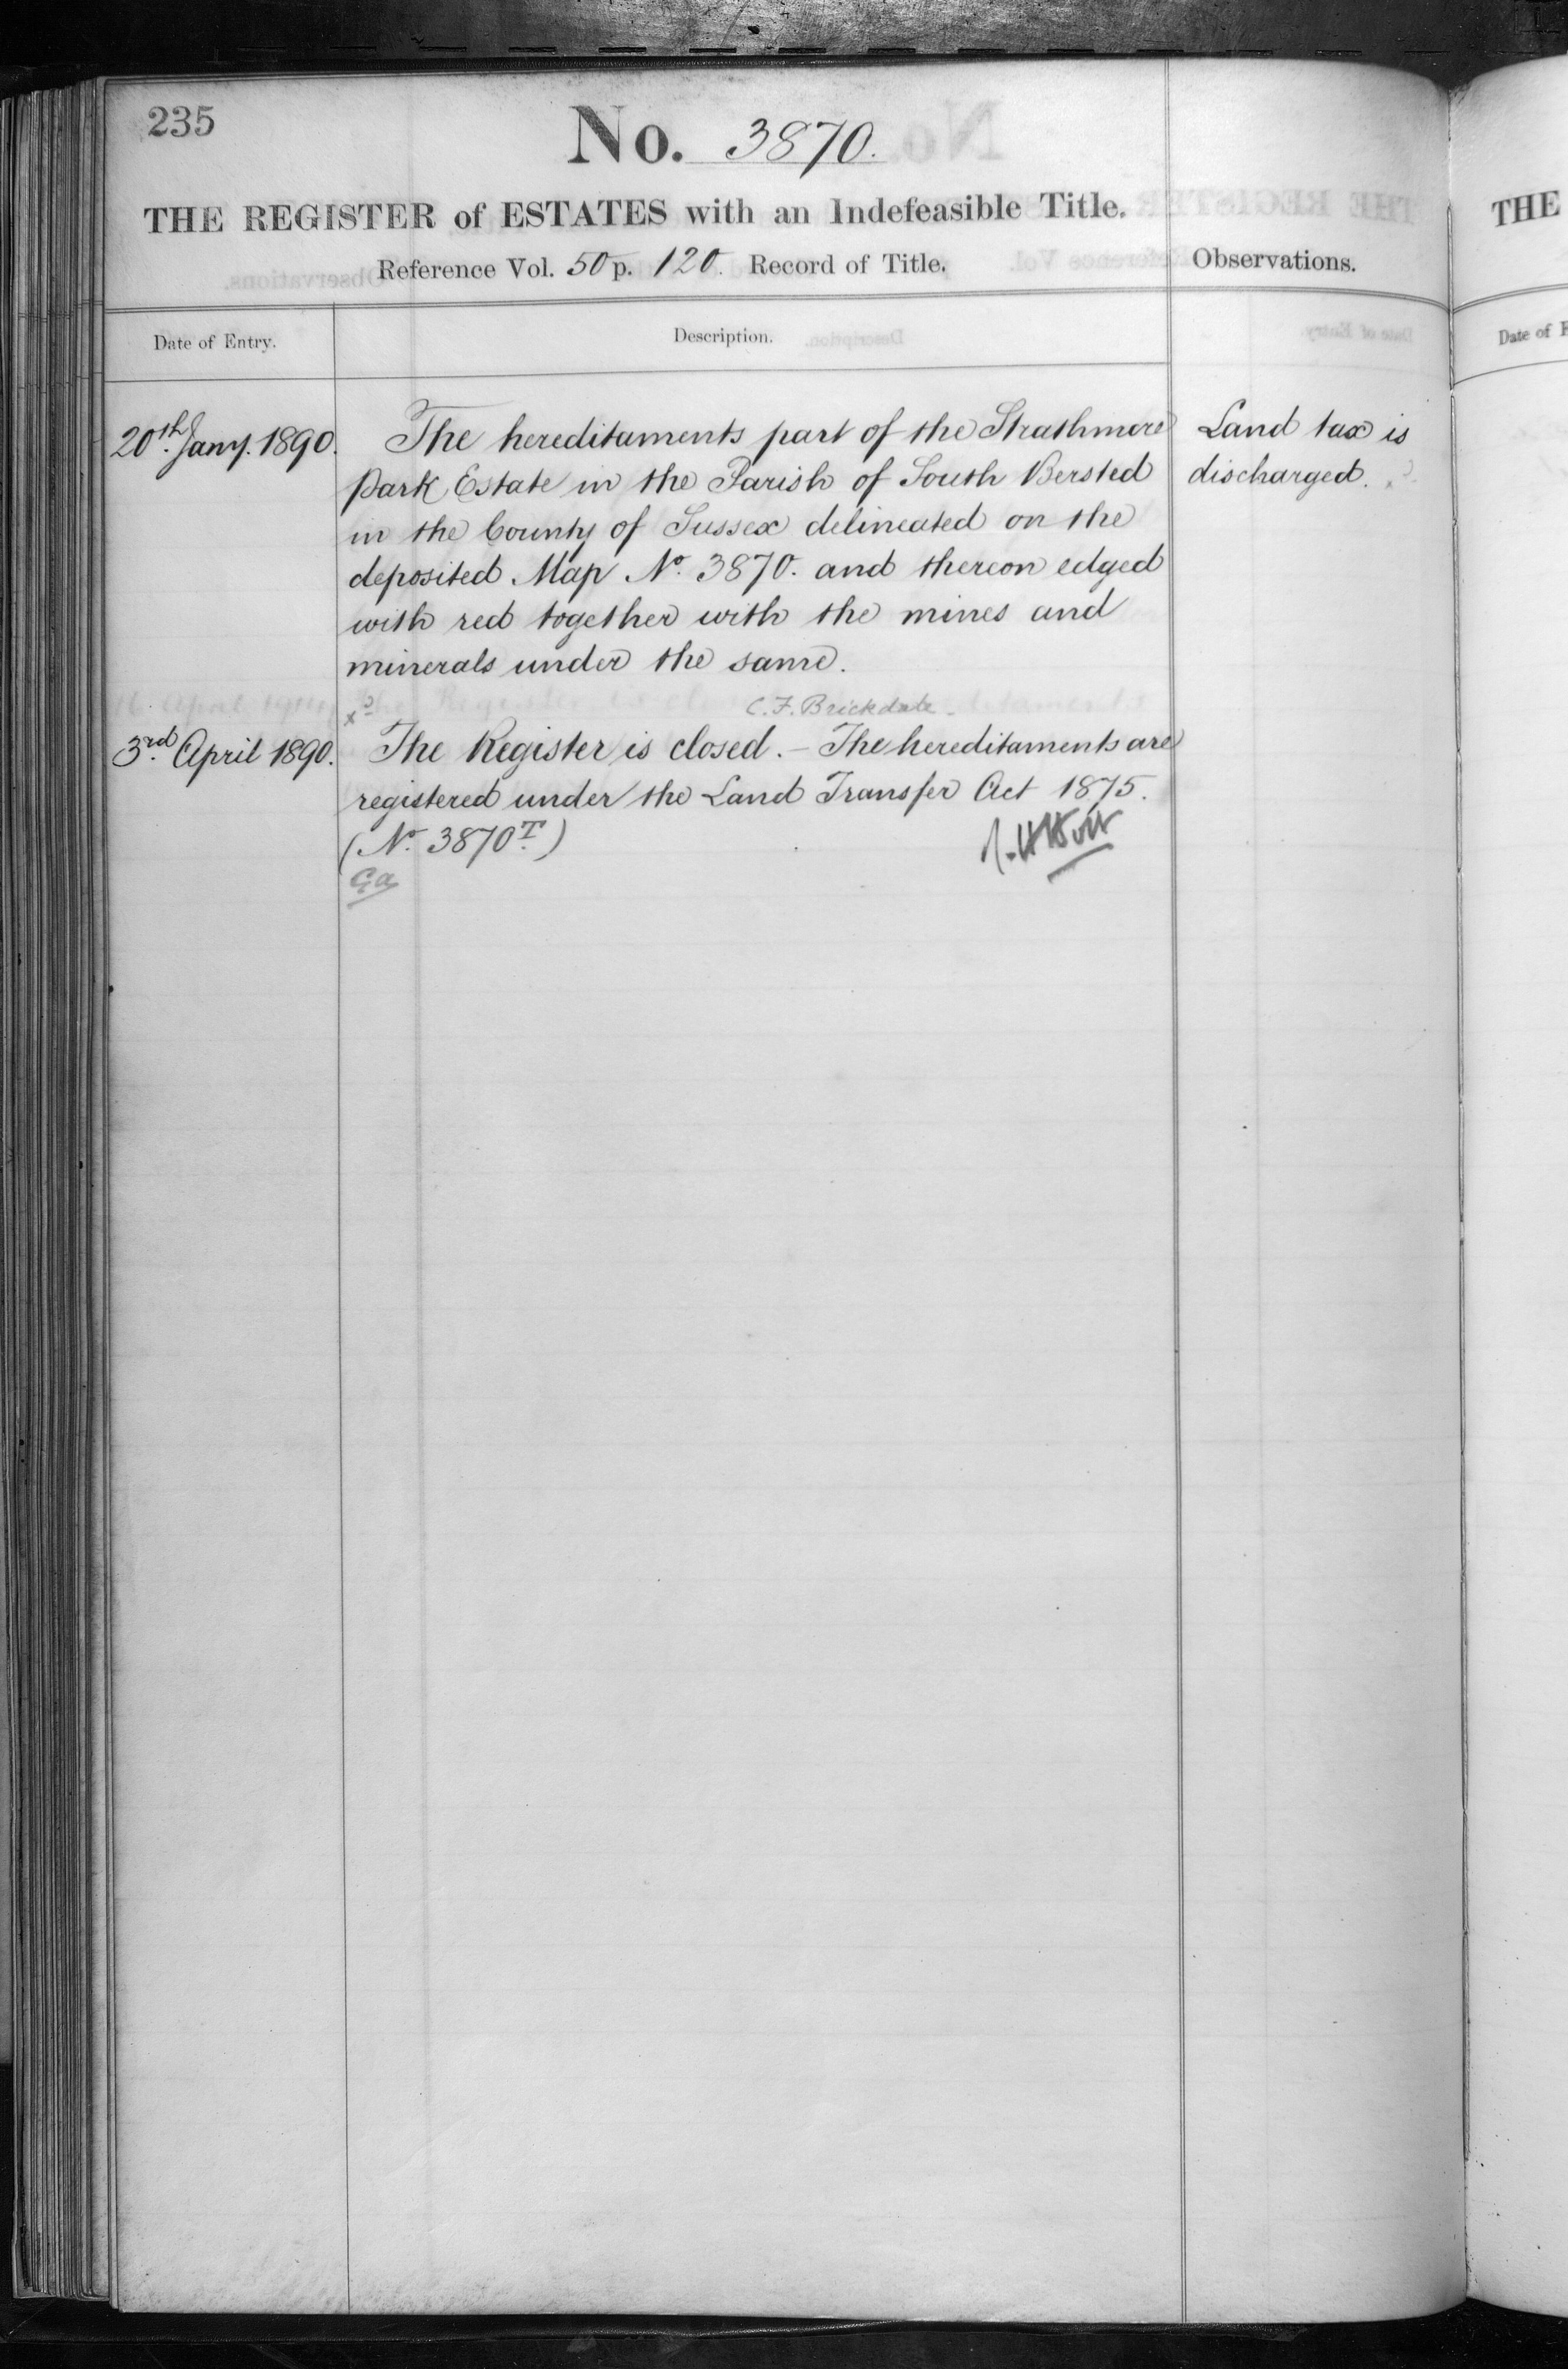 235
No. 3870.
THE REGISTER of ESTATES with an Indefeasible Title.
Reference Vol. 50 p. 120. Record of Title.
Observations.
Date of Entry.
Description.
20th. Jany. 1890.
The hereditaments part of the Strathmore
Park Estate in the Parish of South Bersted
in the County of Sussex delineated on the
deposited Map No. 3870. and thereon edged
with red together with the mines and
minerals under the same.
Land tax is
discharged.
C. F. Brickdale
3rd. April 1890.
The Register is closed. – The hereditaments are
registered under the Land Transfer Act 1875.
(No. 3870T.)
THE
Date of E